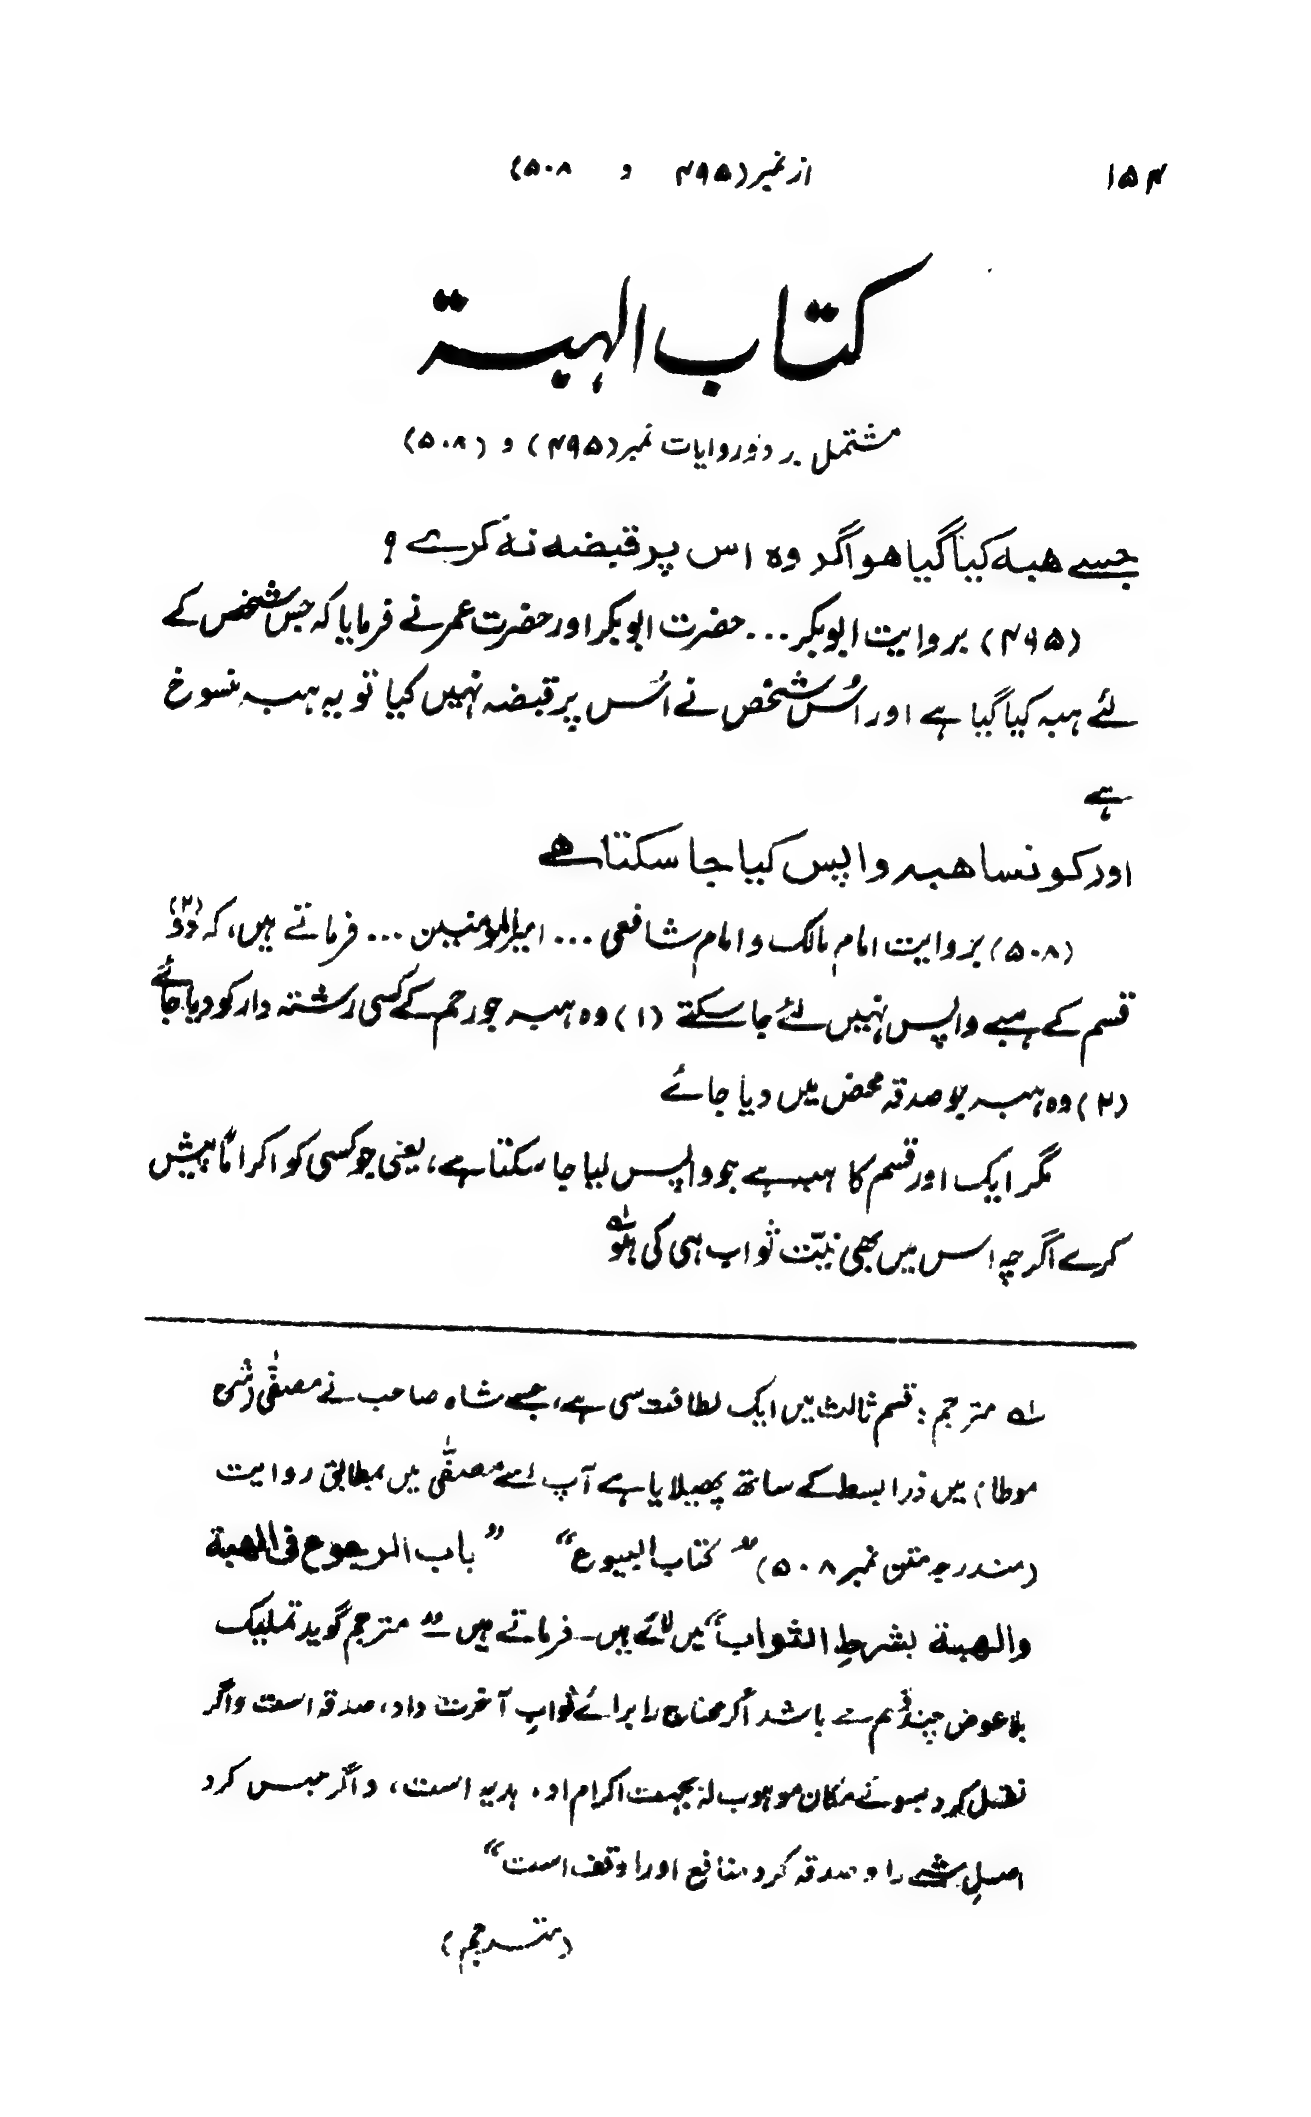 ۱۵۴ از نمبر (۴۹۵ و ۵۰۸)
کتاب الہبۃ
مشتمل بر دو روایات نمبر (۴۹۵) و (۵۰۸)
جسے ھبہ کیا گیا ھو اگر وہ اس پر قبضہ نہ کرے ؟
(۴۹۵) بروایت ابوبکر ... حضرت ابوبکر اور حضرت عمر نے فرمایا کہ جس شخص کے
لئے ہبہ کیا گیا ہے اور اُس شخص نے اُس پر قبضہ نہیں کیا تو یہ ہبہ منسوخ
ہے
اور کونسا ھبہ واپس کیا جا سکتا ھے
(۵۰۸) بروایت امام مالک و امام شافعی ... امیر المومنین ... فرماتے ہیں، کہ دو (۲)
قسم کے ہبے واپس نہیں لئے جا سکتے (۱) وہ ہبہ جو رحم کے کسی رشتہ دار کو دیا جائے
(۲) وہ ہبہ جو صدقہ محض میں دیا جائے
مگر ایک اور قسم کا ہبہ ہے جو واپس لیا جا سکتا ہے، یعنی جو کسی کو اکراماً پیش
کرے اگرچہ اس میں بھی نیّت ثواب ہی کی ہو لہ
لہ مترجم : قسم ثالث میں ایک لطافت سی ہے، جسے شاہ صاحب نے مصفّٰی (شرح
موطا) میں ذرا بسط کے ساتھ پھیلایا ہے آپ اسے مصفّٰی میں بمطابق روایت
(مندرجہ متن نمبر ۵۰۸) ”کتاب البیوع“ ”باب الرجوع فی الھبۃ
والھبۃ بشرطِ الثواب“ میں لائے ہیں۔ فرماتے ہیں ؎ ”مترجم گوید تملیک
بلا عوض چند قسم مے باشد اگر محتاج را برائے ثوابِ آخرت داد، صدقہ است واگر
نقل کرد بسوئے مکان موہوب لہ بجہت اکرام او، ہدیہ است، واگر حبس کرد
اصلِ شے را و صدقہ کرد منافع اورا وقف است“
(مترجم)